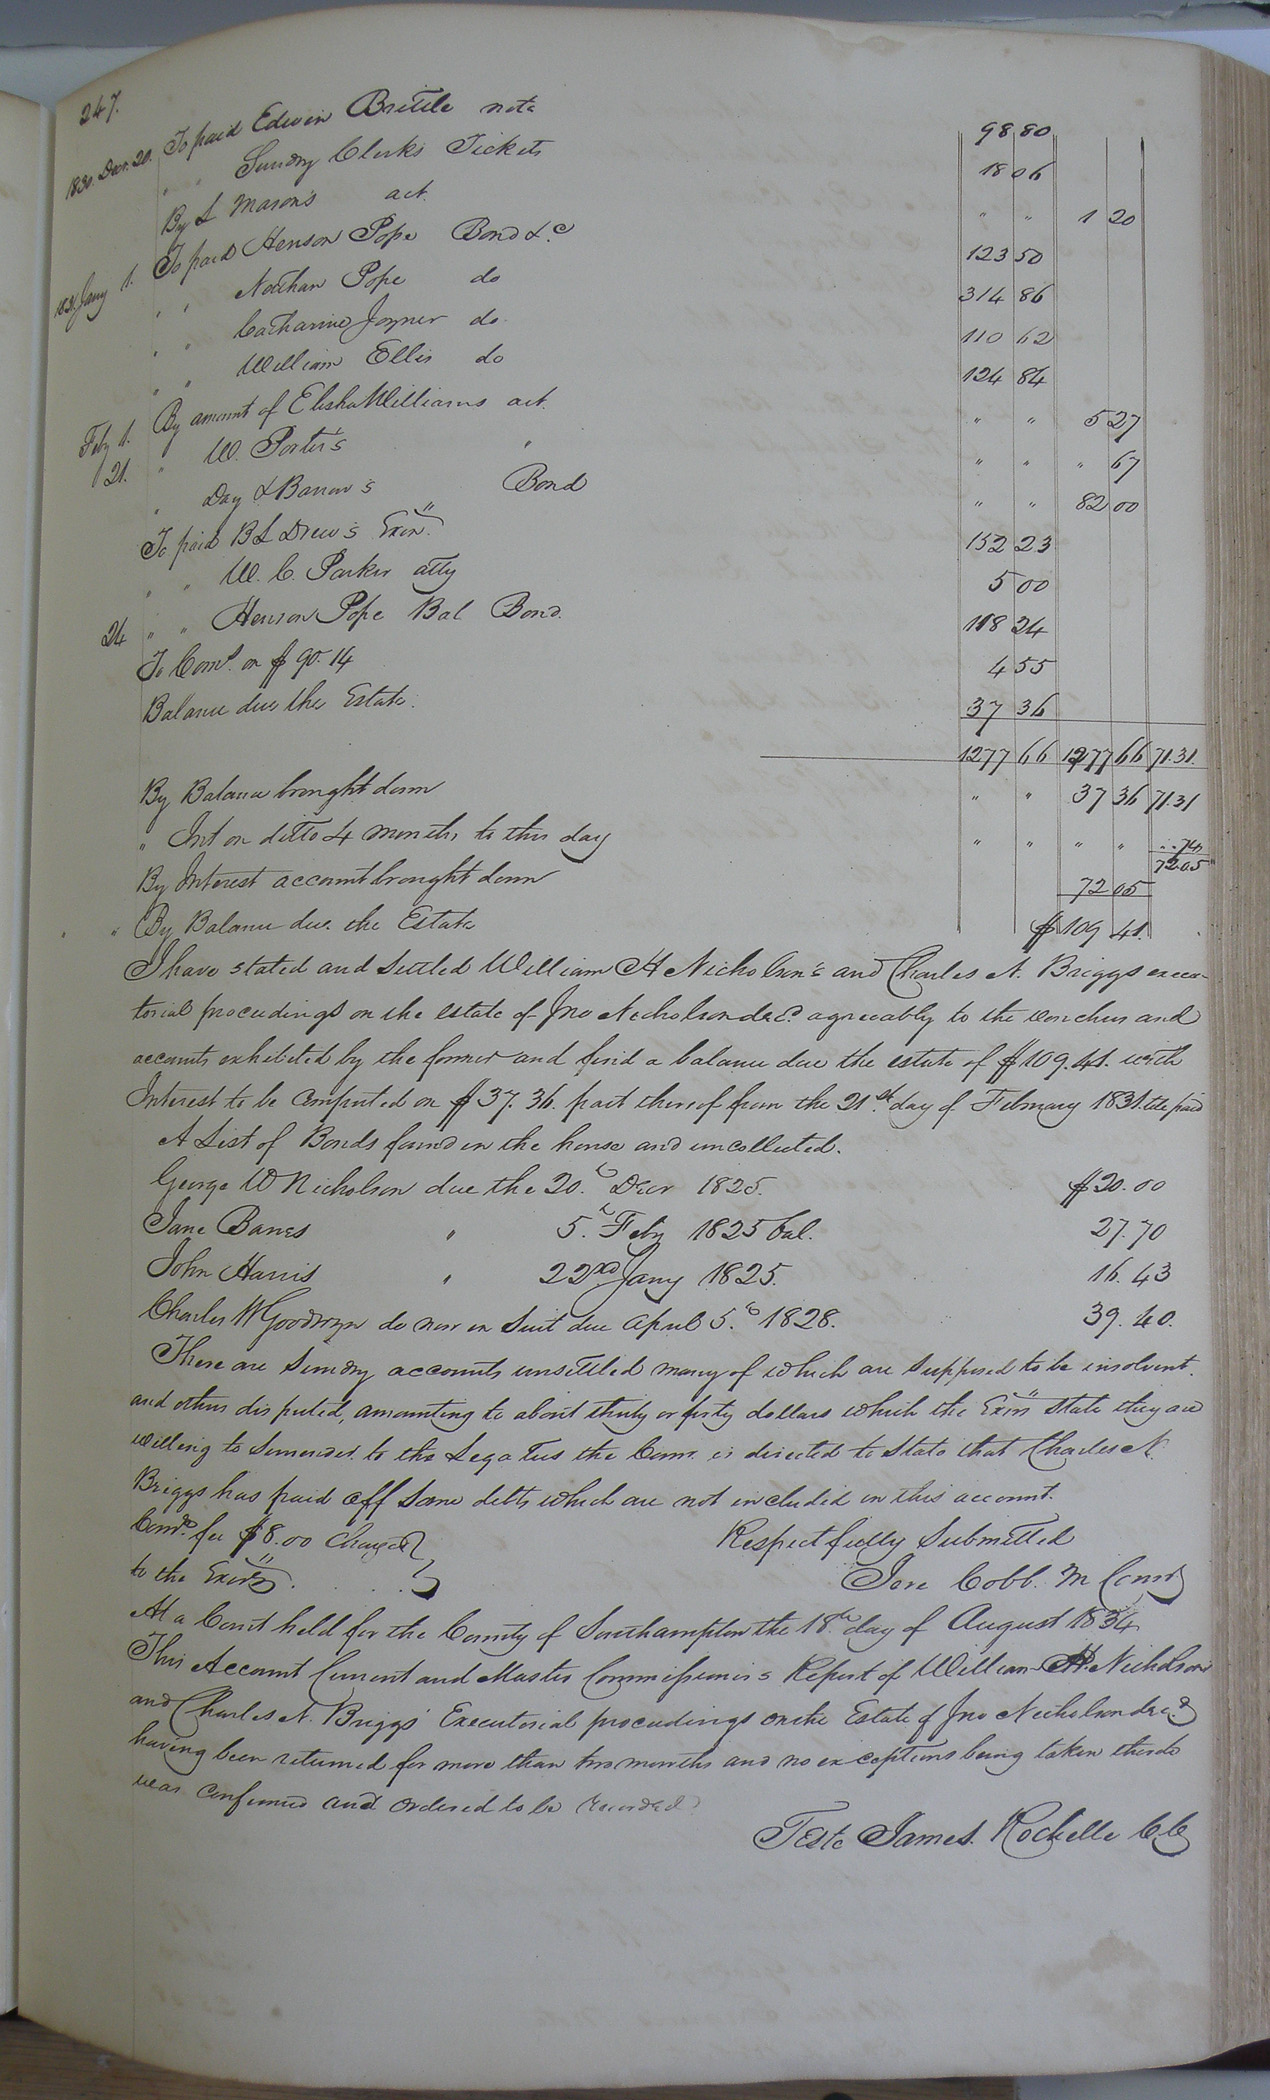 247.
1830. Decr. 20. To paid Edwin Brittle note 98 80
" " Sundry Clerks Tickets 18 06
By L Mason's act. " " 1 20
1831 Jany 1. To paid Henson Pope Bond &c 123 50
" " Nathan Pope do 314 86
" " Catharine Joyner do 110 62
" " William Ellis do 124 84
Feby 1. By amount of Elisha Williams act. " " 5 27
21. " W. Porter's " " " " 67
" Day & Barrow's Bond " " 82 00
To paid B L Drew's Exors. 152 23
" " W. C. Parker atty 5 00
24 " " Henson Pope Bal Bond. 118 24
To Coms. on $ 90.14 4 55
Balance due the Estate. 37 36
1277 66 1277 66 71.31.
By Balance brought down " " 37 36 71.31
" Int on ditto 4 months to this day " " " " " .74
72.05
By Interest account brought down 72 05
" By Balance due the Estate $ 109 41.
I have stated and Settled William H Nicholson's and Charles N. Briggs execu-
torial proceedings on the estate of Jno Nicholson decd. agreeably to the vouchers and
accounts exhibited by the former and find a balance due the estate of $109.41. with
Interest to be computed on $37.36. part thereof from the 21st. day of February 1831. till paid
A List of Bonds found in the house and uncollected.
George W Nicholson due the 20.th Decr 1825. $20.00
Jane Banes " 5.th Feby 1825 bal. 27.70
John Harris " 22nd Jany 1825. 16.43
Charles W Goodwyn do now in Suit due April 5.th 1828. 39.40.
There are Sundry accounts unsettled many of which are Supposed to be insolvent.
and others disputed, amounting to about thirty or forty dollars which the Exors state they are
willing to Surrender to the Legatees the Comr. is directed to State that Charles N.
Briggs has paid off Some debts which are not included in this account.
Comrs. fee $8.00 Charged } Respectfully Submitted
to the Exors. . . } Jere Cobb. M Comr
At a Court held for the County of Southampton the 18th day of August 1834
This Account Current and Master Commissioner's Report of William H. Nicholson's
and Charles N. Briggs' Executorial proceedings on the Estate of Jno Nicholson decd.
having been returned for more than two months and no exceptions being taken thereto
was confirmed and ordered to be recorded
Teste James Rochelle C.C